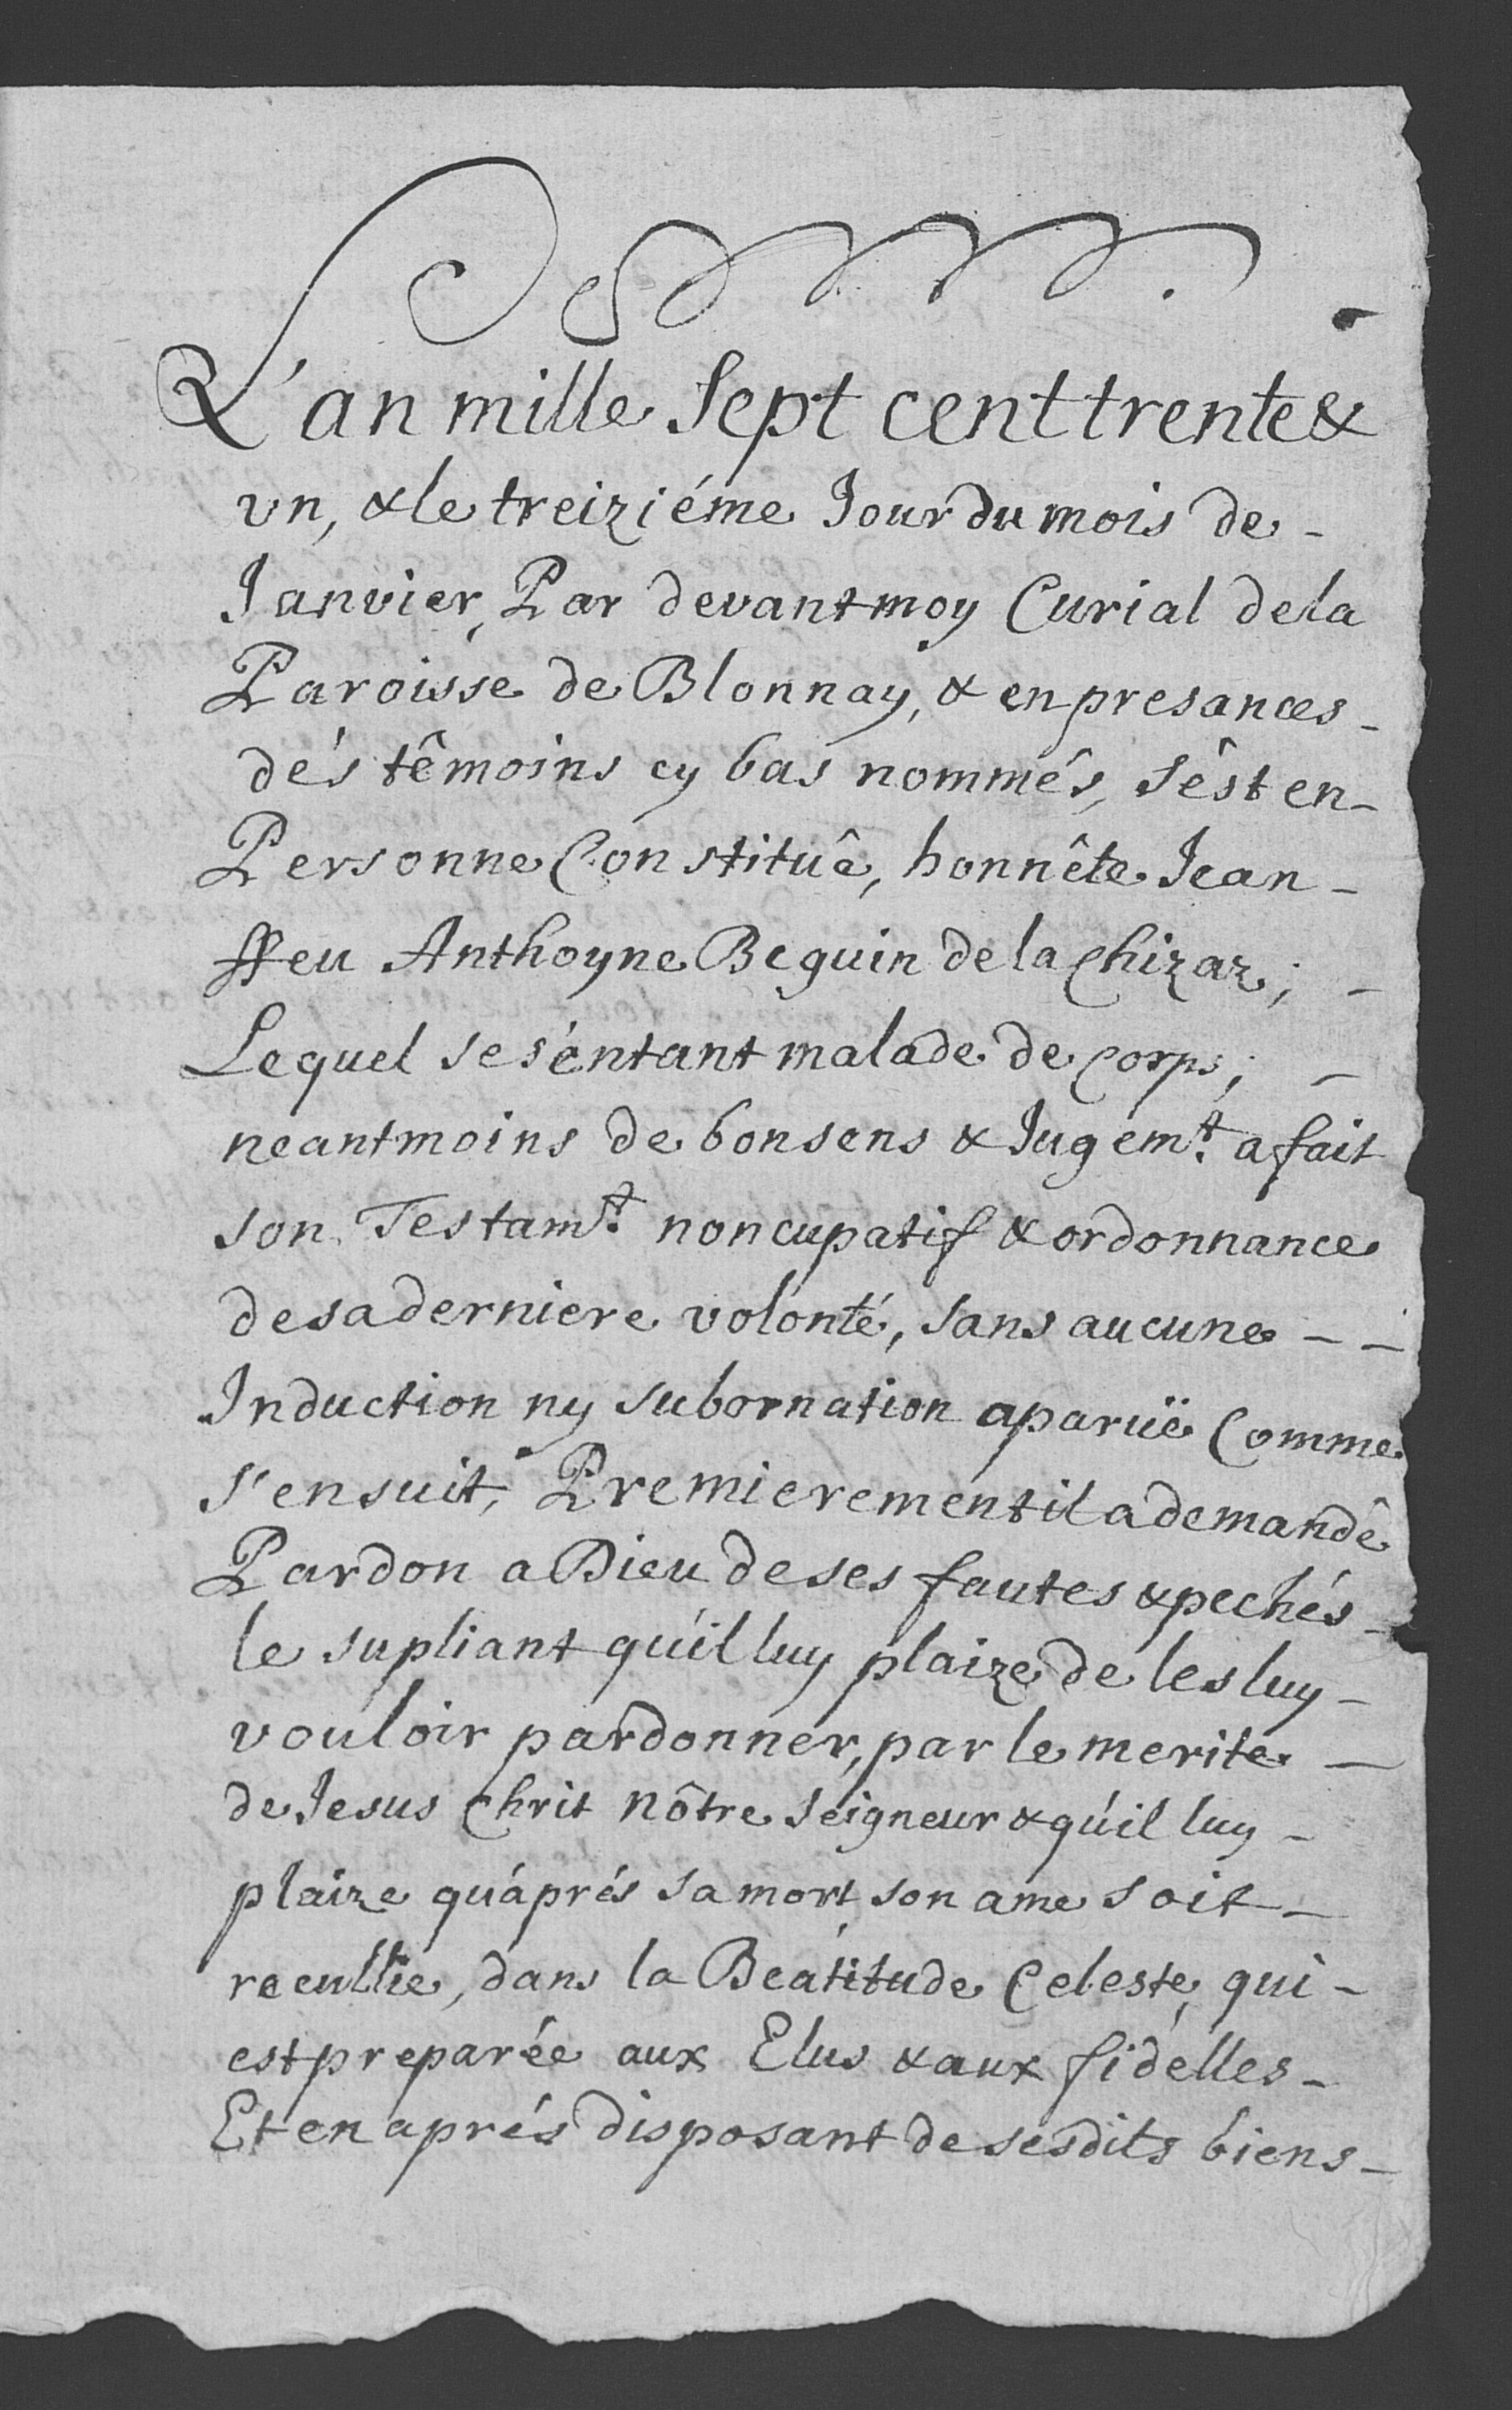 L'an mille Sept cent trente &
vn, & le treiziéme Jour du mois de -
Janvier, Par devant moy Curial de la
Paroisse de Blonnay, & en presances -
dés têmoins cy bas nommés, s'êst en -
Personne Constituê, honnête Jean -
ffeu Anthoyne Beguin de la Chizaz; -
Lequel se séntant malade de Corps; -
neantmoins de bon sens & Jugemt. a fait
son Testamt. noncupatif & ordonnance
de sa derniere volonté, sans aucune - -
Induction ny subornation aparüe Comme
s'ensuit, Premierement il a demandê
Pardon a Dieu de ses fautes & pechés -
le supliant qu'il luy plaize de les luy -
vouloir pardonner, par le merite -
de Jesus Chrit nôtre Seigneur & qu'il luy -
plaize qu'áprés sa mort, son ame soit -
recullie, dans la Beátitude Celeste, qui -
est preparée aux Elus & aux fidélles -
Et en aprés disposant de sesdits biens -